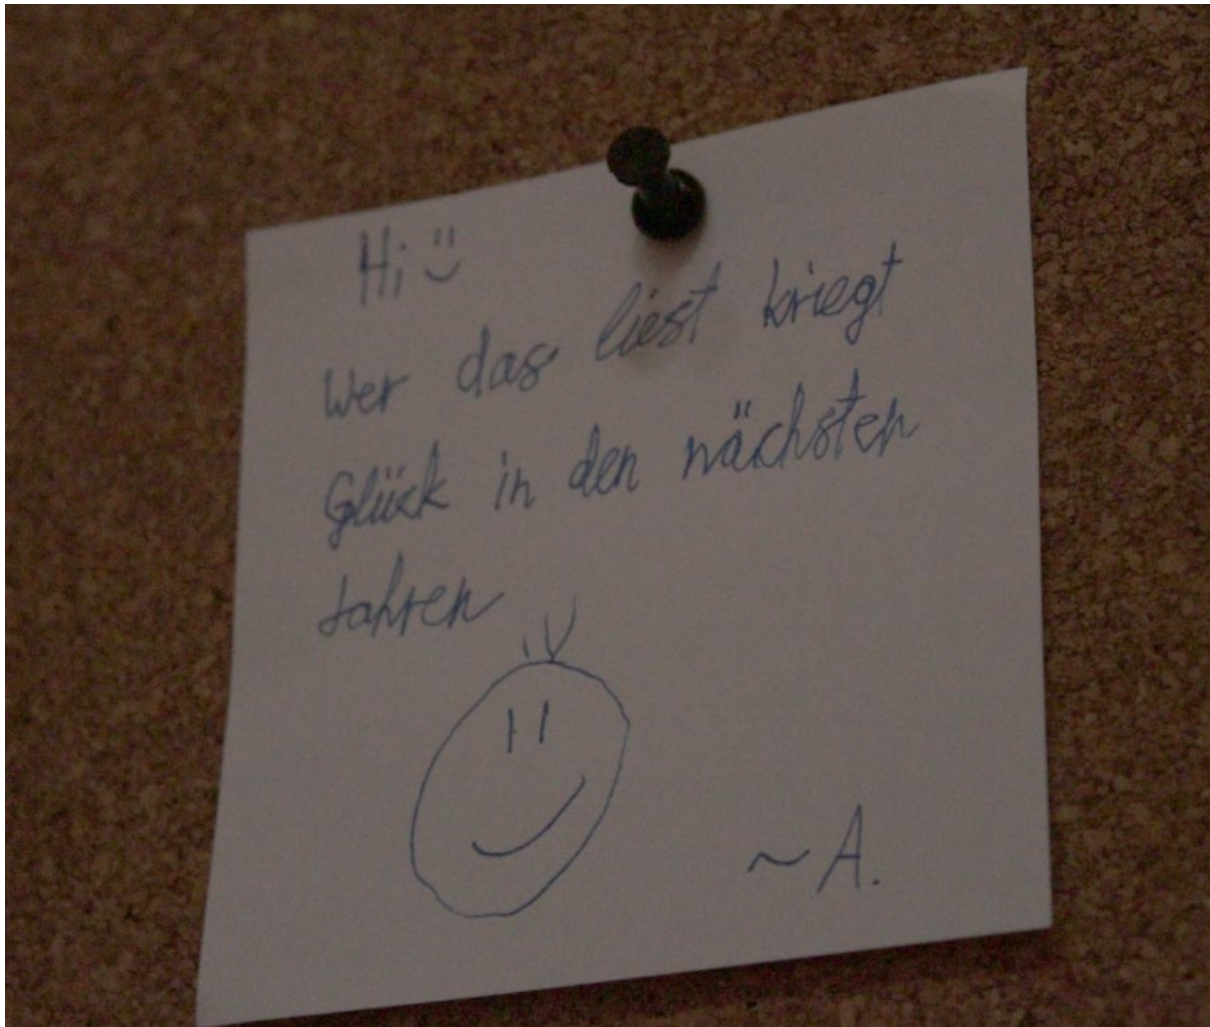 Hi Ü
Wer das liest kriegt
Glück in den nächsten
Jahren
~A.